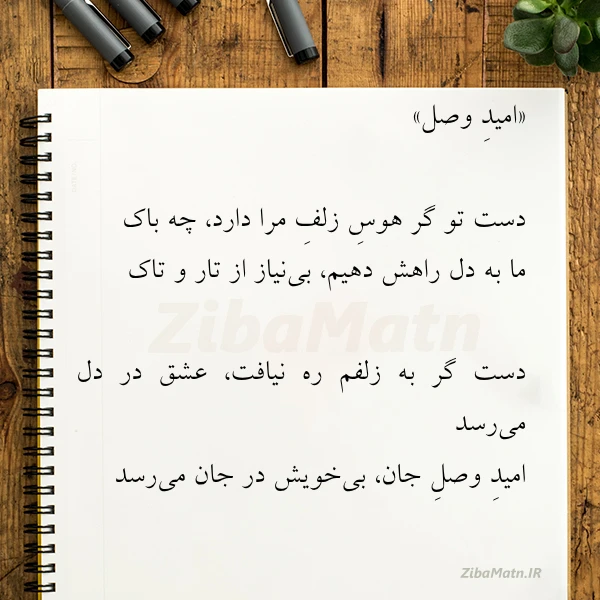 «امیدِ وصل»
دست تو گر هوسِ زلفِ مرا دارد، چه باک
ما به دل راهش دهیم، بی‌نیاز از تار و تاک
ZibaMatn
دست گر به زلفم ره نیافت، عشق در دل
می‌رسد
امیدِ وصلِ جان، بی‌خویش در جان می‌رسد
ZibaMatn.IR